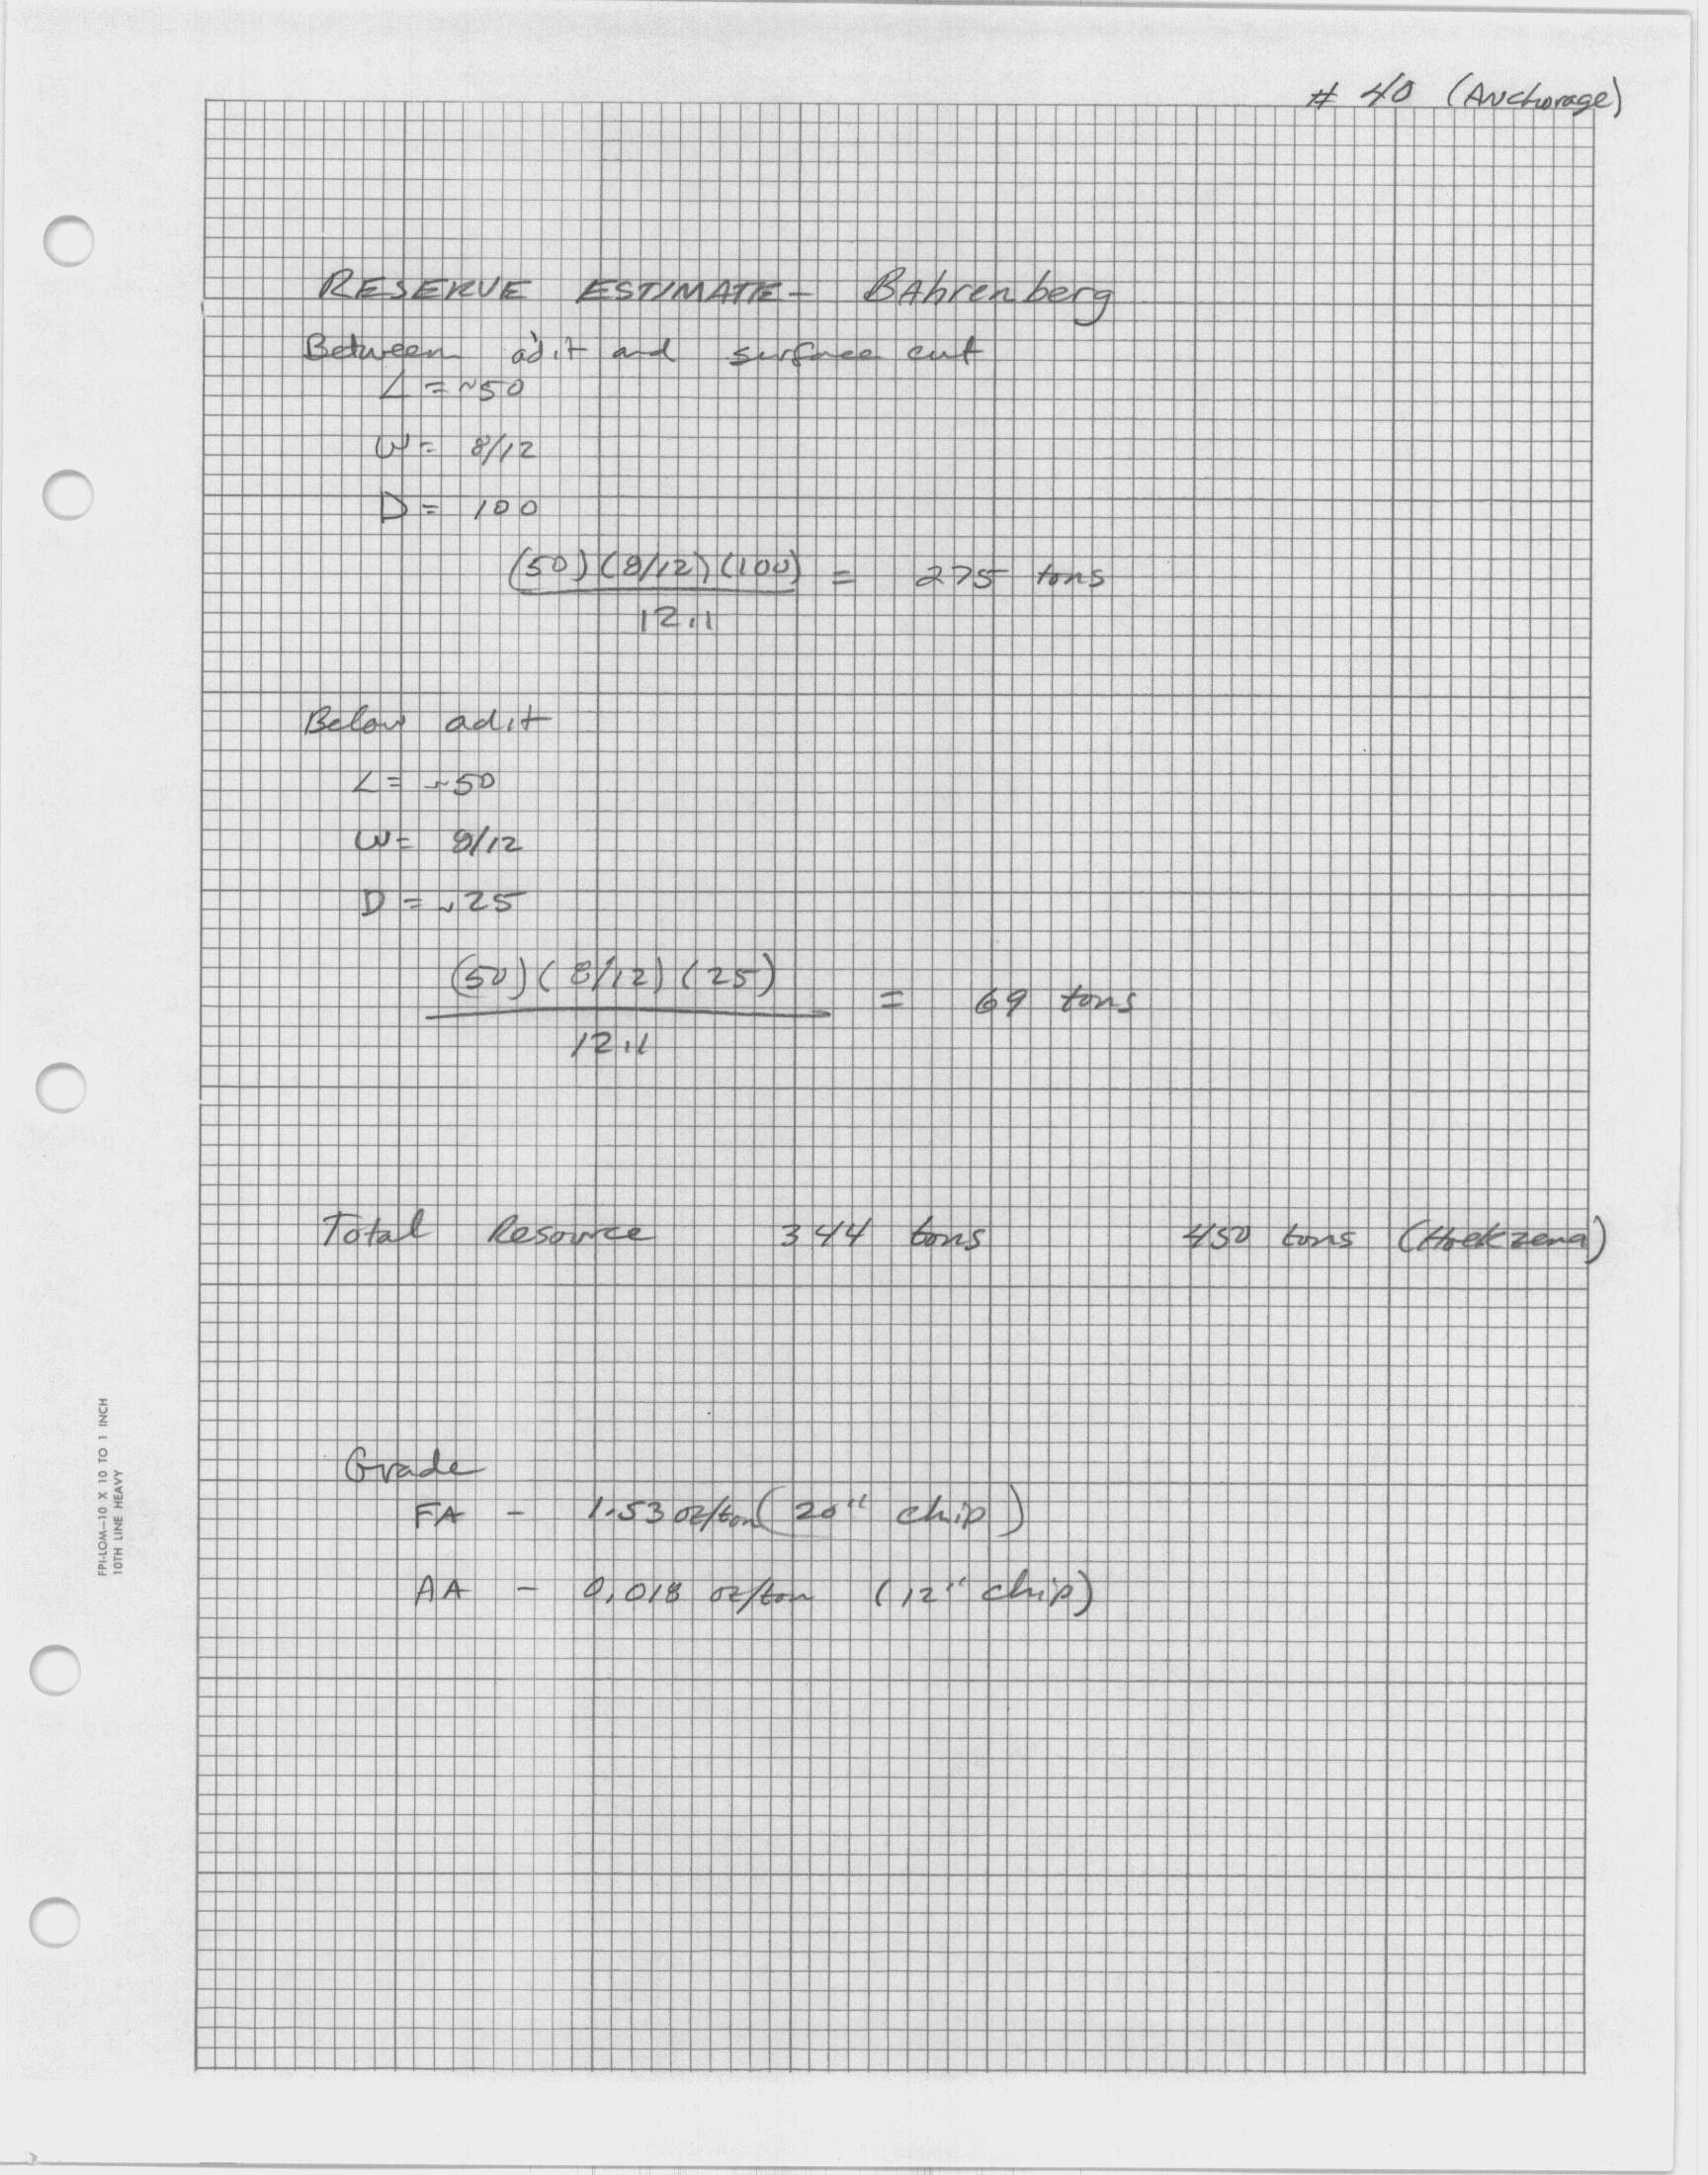 # 40 (Anchorage)
RESERVE ESTIMATE - BAhrenberg
Between adit and surface cut
L = ~50
W = 8/12
D = 100
(50)(8/12)(100) = 275 tons
12.1
Below adit
L = ~50
W = 8/12
D = ~25
(50)(8/12)(25) = 69 tons
12.1
Total Resource 344 tons 450 tons (Hoekzema)
Grade
FA - 1.53 oz/ton (20" chip)
AA - 0.018 oz/ton (12" chip)
FPI-LOM-10 X 10 TO 1 INCH
10TH LINE HEAVY